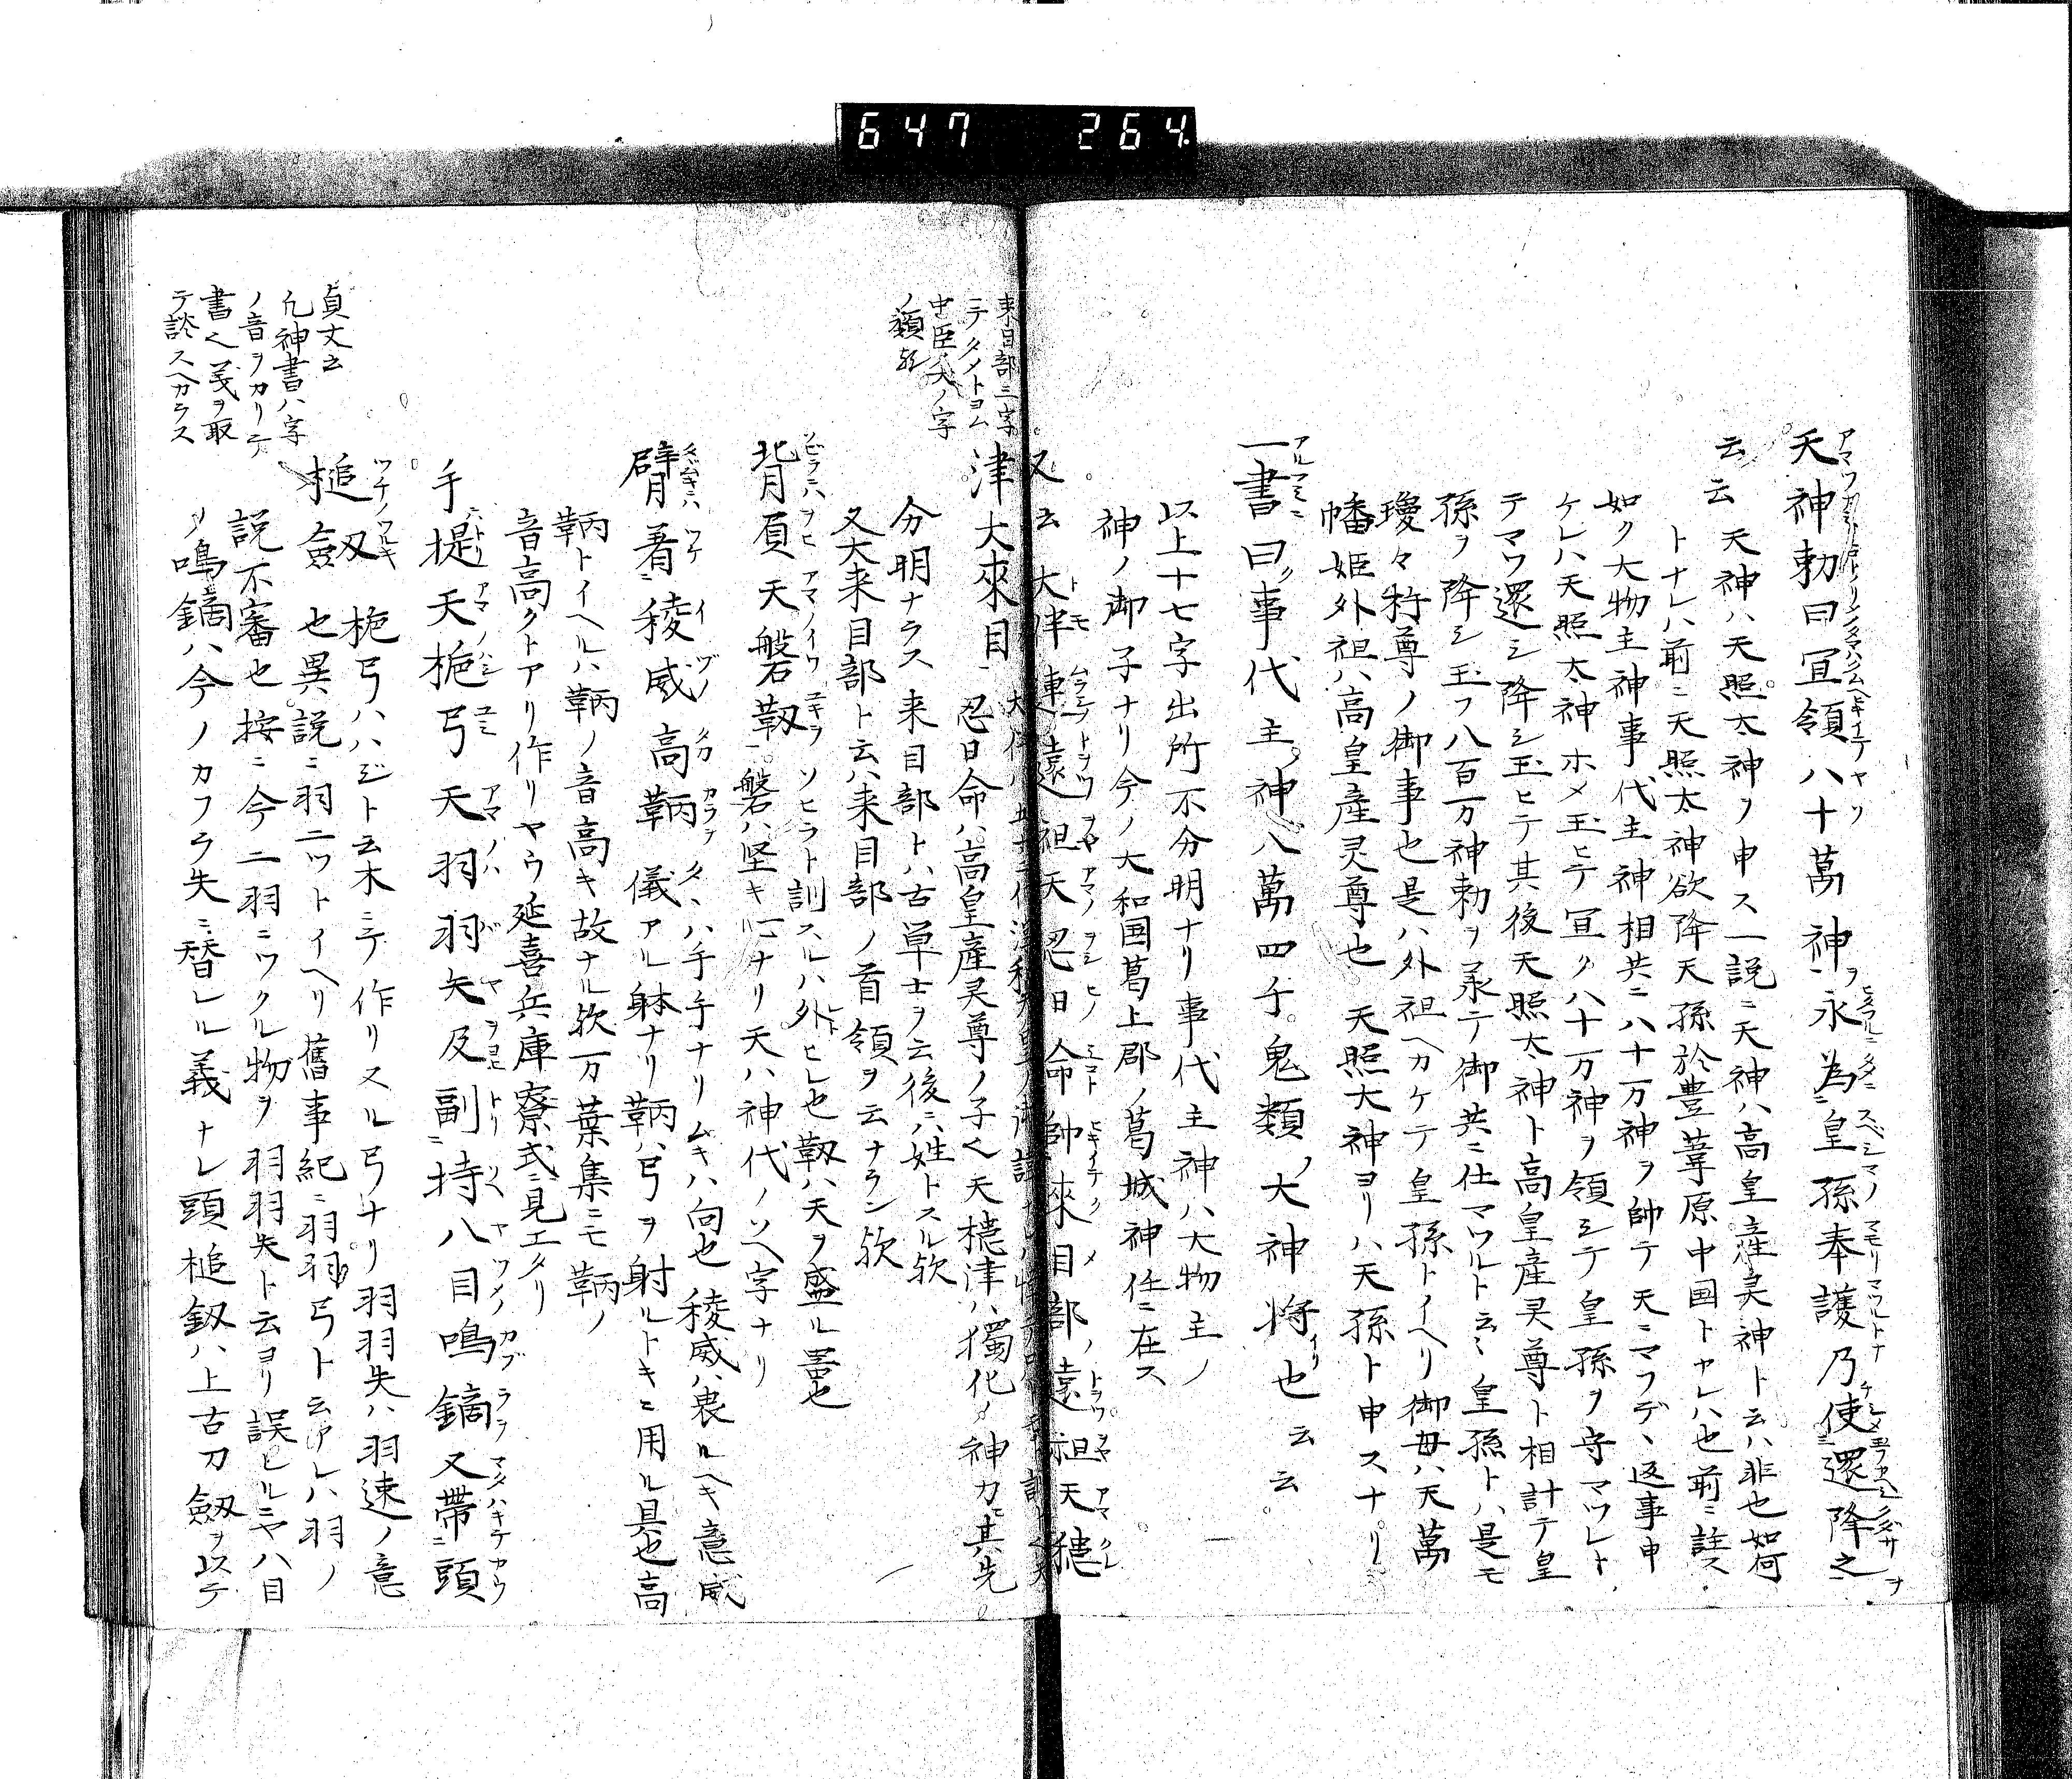 647 264
天神勅曰宣領八十萬神ヲ永為皇孫奉護乃使還降之
云云 天神ハ天照太神ヲ申ス一説ニ天神ハ高皇産灵神ト云ハ非也如何
トナレハ前ニ天照太神欲降天孫於豊葦原中国トヤレハ也前ニ註ス
如ク大物主神事代主神相共ニ八十万神ヲ帥テ天ニマフデヽ返事申
ケレハ天照太神ホメ玉ヒテ宣ク八十万神ヲ領シテ皇孫ヲ守マツレト
テマツ還シ降シ玉ヒテ其後天照太神ト高皇産灵尊ト相計テ皇
孫ヲ降シ玉フ八百万神勅ヲ承テ御共ニ仕マツルト云ミ皇孫トハ是モ
瓊々杵尊ノ御事也是ハ外祖ヘカケテ皇孫トイヘリ御母ハ天萬
幡姫外祖ハ高皇産灵尊也 天照大神ヨリハ天孫ト申スナリ
一書曰事代主神八萬四千鬼類ノ大神将也云云
以上十七字出所不分明ナリ事代主神ハ大物主ノ
神ノ御子ナリ今ノ大和国葛上郡ノ葛城神任ニ在ス
又云大伴連遠祖天忍日命帥來目部ノ遠祖天槵
來目部三字
ニテクメトヨム
中臣ノ大ノ字
ノ類歟
津大來目
忍日命ハ高皇産灵尊ノ子也天槵津ハ獨化ノ神カモ其先
分明ナラス 来目部トハ古単士ヲ云後ニハ姓トスル欤
又大来目部ト云ハ来目部ノ首領ヲ云ナラン欤
背負天磐靫 ソヒラト訓スルハ外ヒレ也靫ハ天ヲ盛ル器也
磐ハ堅キ一ナリ天ハ神代ノソヘ字ナリ
臂着稜威高鞆 タヽハ手ナリムキハ向也稜威ハ畏ルヘキ意威
儀アル躰ナリ鞆ハ弓ヲ射ルトキニ用ル具也高
鞆トイヘルハ鞆ノ音高キ故ナル欤万葉集ニモ鞆ノ
音高クトアリ作リヤウ延喜兵庫寮式ニ見エタリ
手捉天梔弓天羽羽矢及副持八目鳴鏑又帶頭
槌釼 梔弓ハハジト云木ニテ作リスル弓ナリ羽羽矢ハ羽速ノ意
也異説ニ羽二ツトイヘリ舊事紀ニ羽羽弓ト云アレハ羽ノ
説不審也按ニ今二羽ニツクル物ヲ羽羽矢ト云ヨリ誤ヒルニヤ八目
ノ鳴鏑ハ今ノカフラ矢ニ替レル義ナレ頭槌釼ハ上古刀劔ヲ以テ
貞丈云
凡神書ハ字
ノ音ヲカリテ
書く義ヲ取
テ談スヘカラス